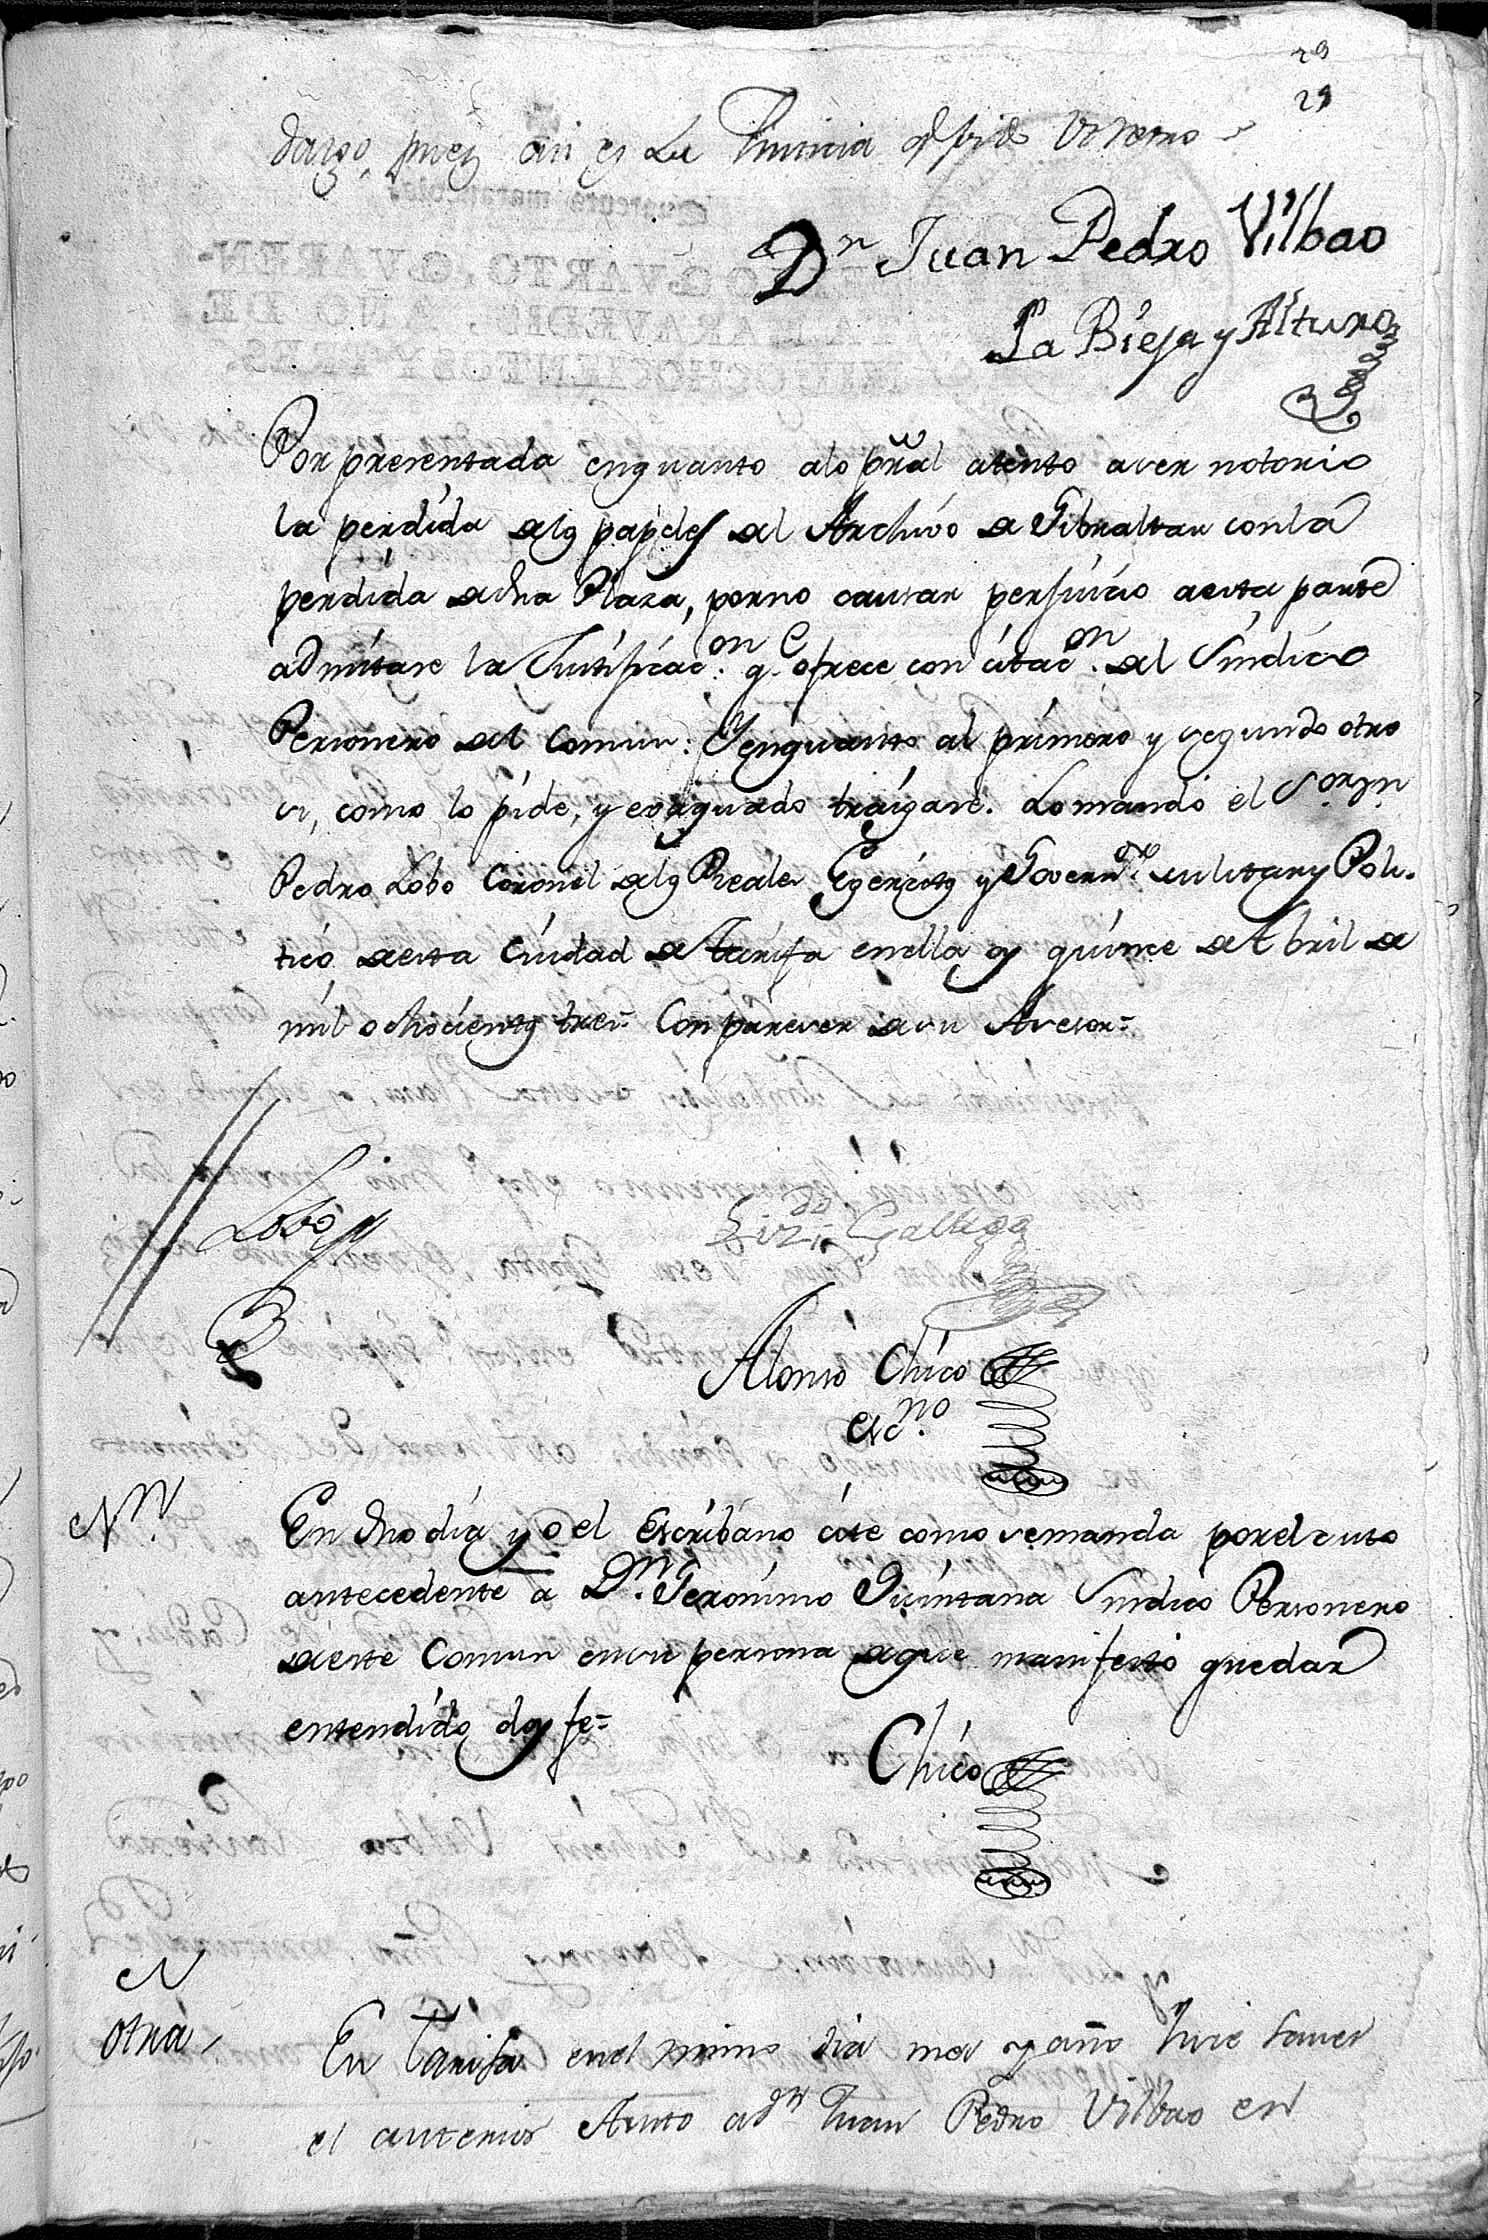 29
29
pues asi es la Justicia
Dn Juan Pedro Vilbao
La Bieja y Alturo
Por presentada enquanto alo pral atento aser notorio
la perdida delos papeles del Archivo de Gibraltar conla
perdida dedha Plaza, porno causar perjuicio aesta parte
admitase la Justificacon qe ofrece con citacon del Sindico
Personero del Comun: Yenquanto al primero y segundo otro
si, como lo pide, y evaquado traigase. Lo mando el Sor Dn
Pedro Lobo Coronel delos Reales Egercitos y Governor militar y Poli-
tico deesta Ciudad de tarifa enella oy quinze de Abril de
mil ochocientos tres Con pareser desu Asesor=
Lobo
Gallego
Alonso Chico
escno
Nn
En dho dia yo el Escribano cite como semanda porelauto
antecedente a Dn Geronimo Quintana Sindico Personero
deeste Comun ensu persona deque manifesto quedar
entendido doy fe=
Chico
otra
En Tarifa enel mismo dia mes y año hice saver
el anterior Auto adn Juan Pedro Vilbao en